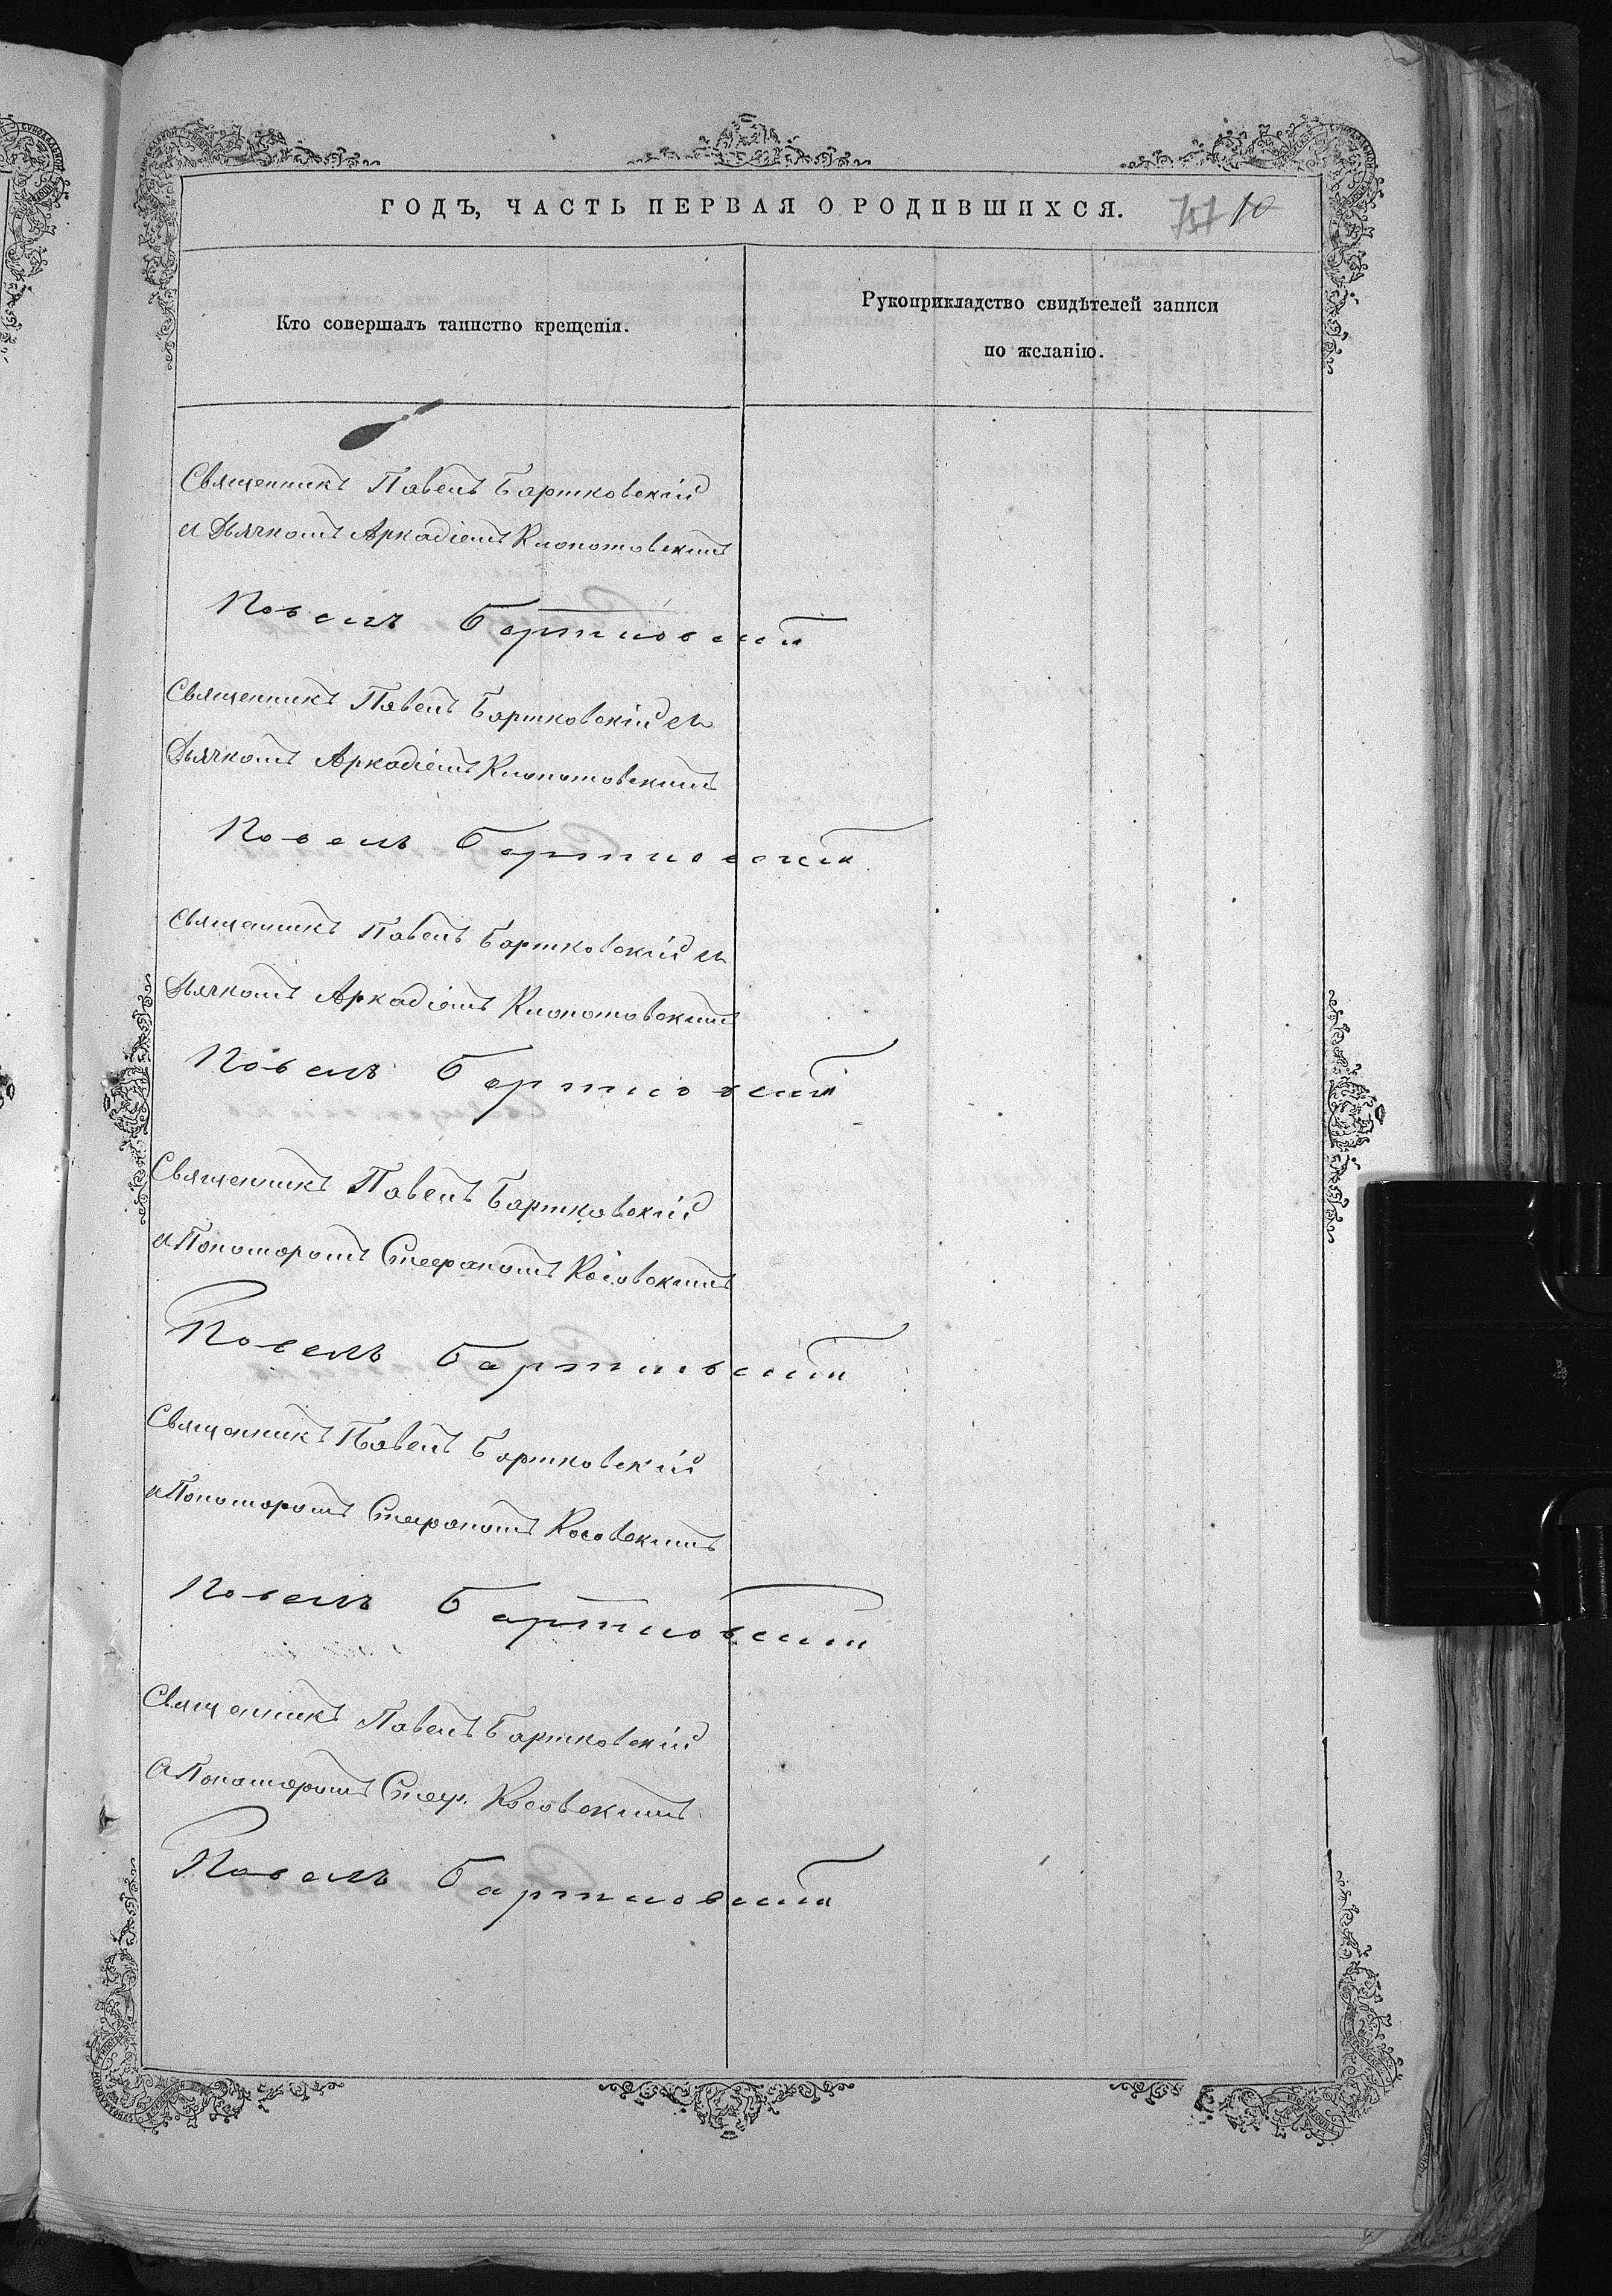 ГОДЪ, ЧАСТЬ ПЕРВАЯ О РОДИВШИХСЯ. 757 10
Кто совершалъ таинство крещенія.
Рукоприкладство свидѣтелей записи
по желанію.
Священникъ Павелъ Бартковскій
и Дьячкомъ Аркадіемъ Клопотовскимъ
Павелъ Бартковскій
Священникъ Павелъ Бартковскій и
Дьячкомъ Аркадіемъ Клопотовскимъ
Павелъ Бартковскій
Священникъ Павелъ Бартковскій и
Дьячкомъ Аркадіемъ Клопотовскимъ
Павелъ Бартковскій
Священникъ Павелъ Бартковскій
и Пономоромъ Стефаномъ Косовскимъ
Павелъ Бартковскій
Священникъ Павелъ Бартковскій
и Пономоромъ Стефаномъ Косовскимъ
Павелъ Бартковскій
Священникъ Павелъ Бартковскій
и Пономоромъ Стеф. Косовскимъ
Павелъ Бартковскій